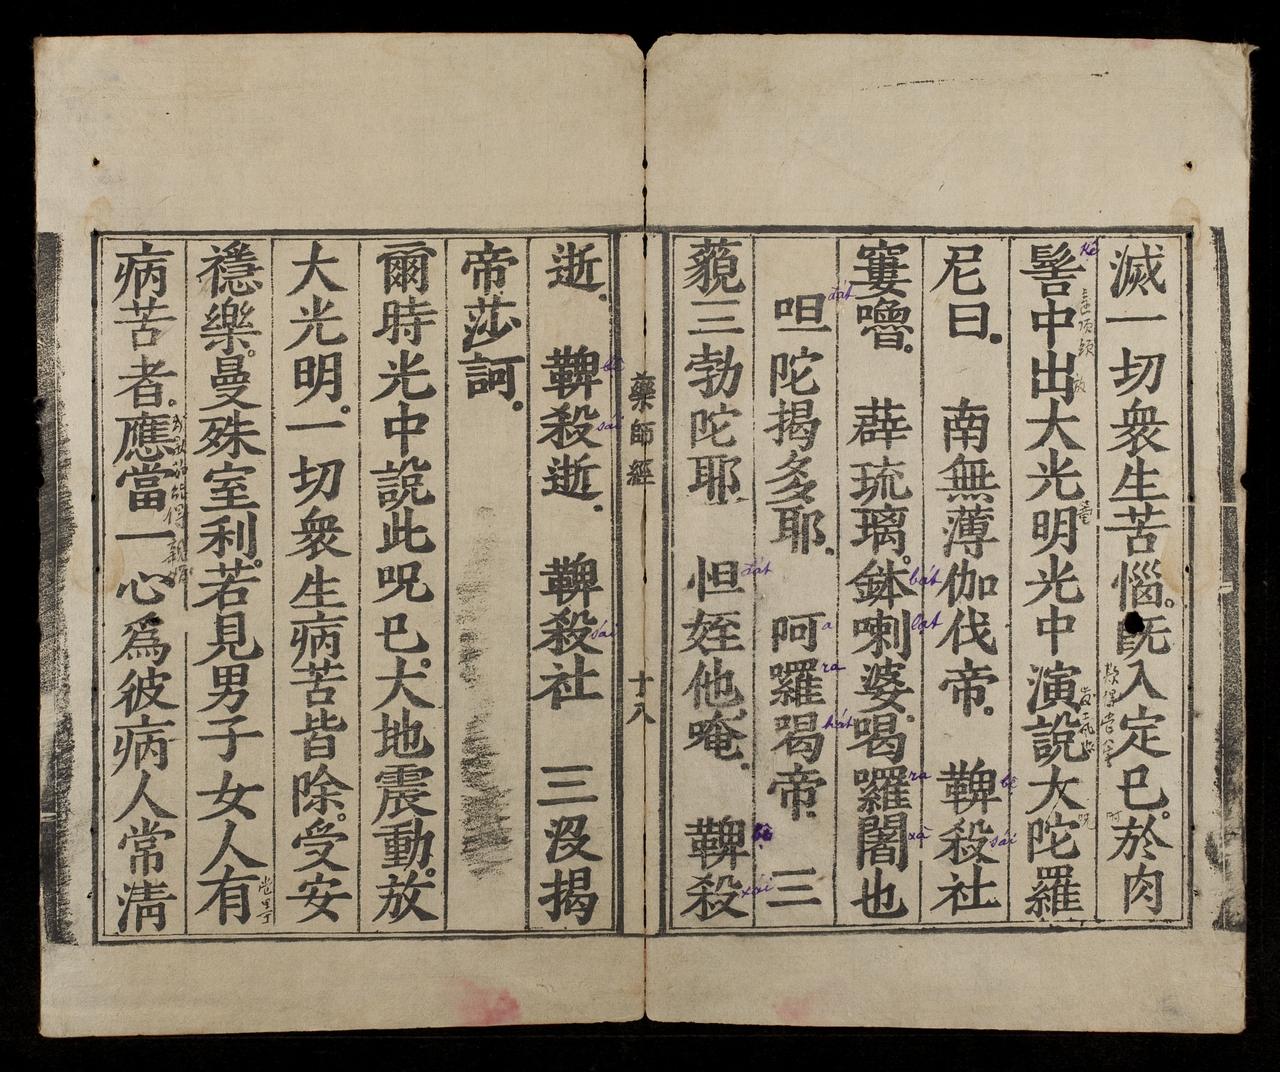 滅一切衆生苦惱。既入定已。於肉
髻中出大光明光中演說大陀羅
尼曰。南無薄伽伐帝。鞞殺社
窶嚕。薜琉璃。鉢喇婆。喝囉闍也
呾陀揭多耶。阿羅喝帝。三
藐三勃陀耶。怛姪他。唵。鞞殺
逝。鞞殺逝。鞞殺社三没揭
帝莎訶。
爾時光中說此呪已。大地震動。放
大光明。一切衆生病苦皆除。受安
穩樂。曼殊室利。若見男子女人有
病苦者。應當一心爲彼病人常清
藥師經
十八
Kê
bê
sái
bát
lạt
ra
xà
đát
a
ra
hát
đát
bê
xái
bê
sái
sái